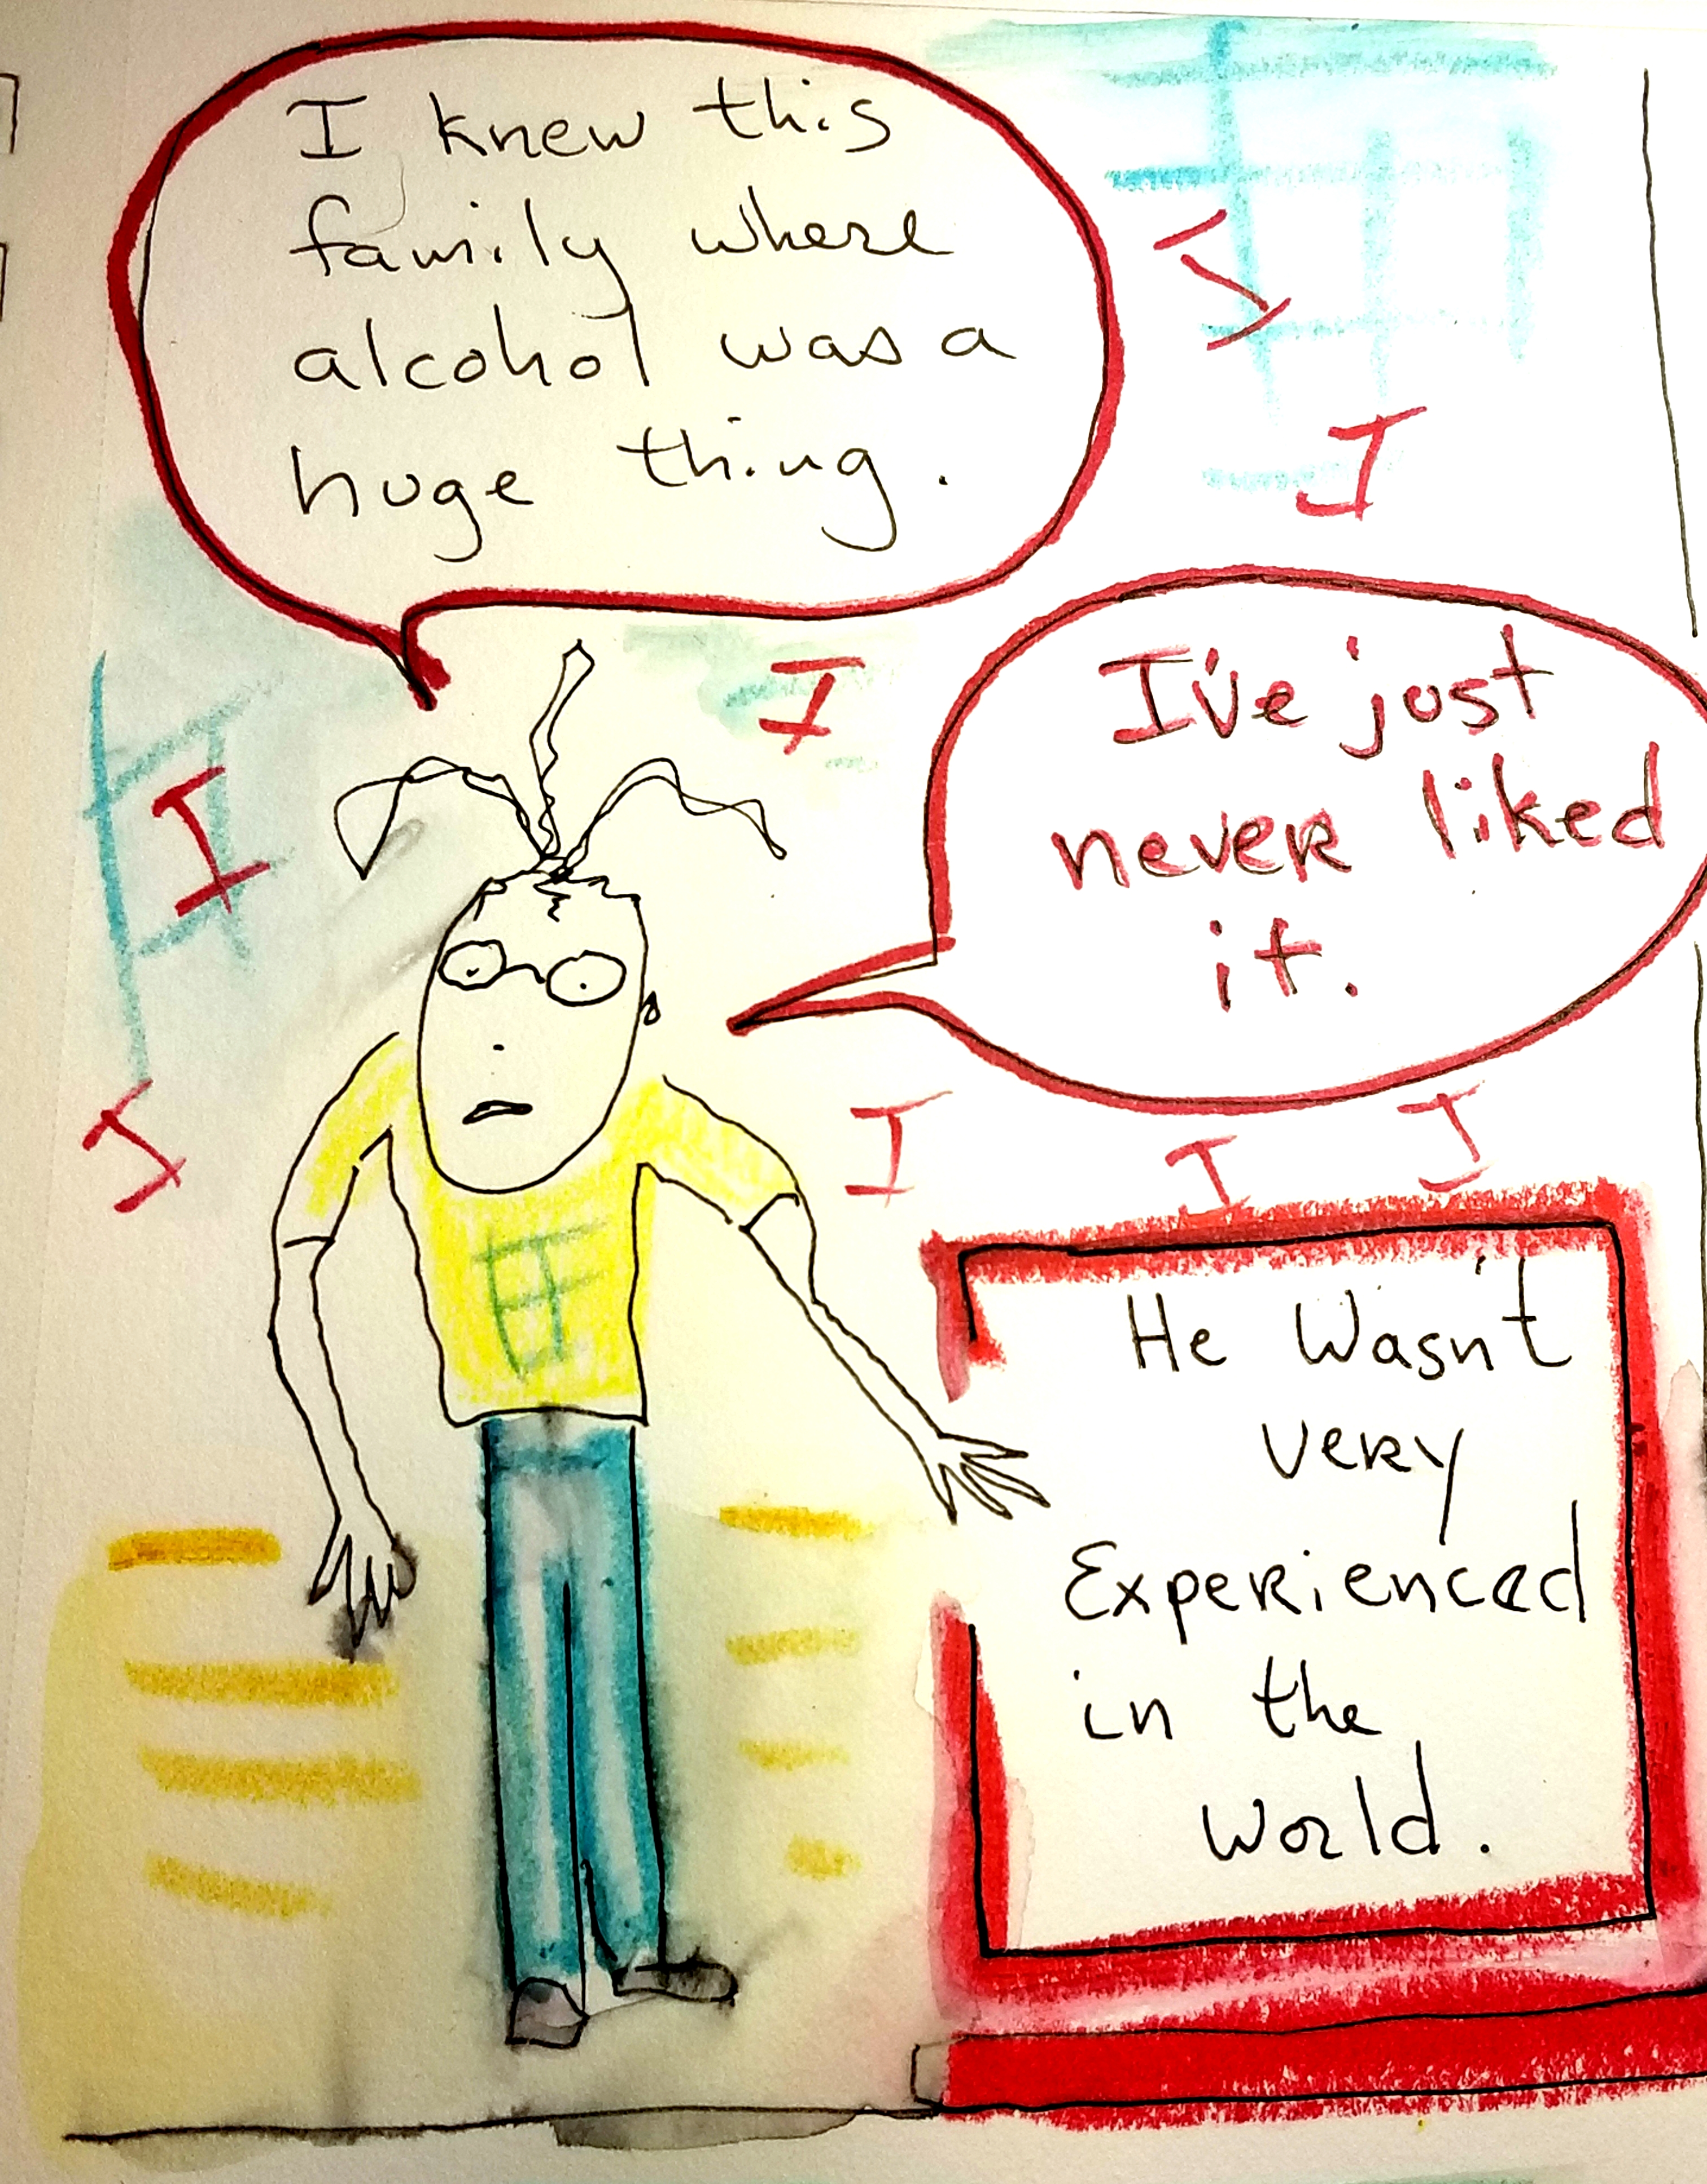 I knew this
family where
alcohol was a
huge thing.
I
I
I
I've just
never liked
it.
I
I
I
I
I
He Wasn't
very
Experienced
in the
World.